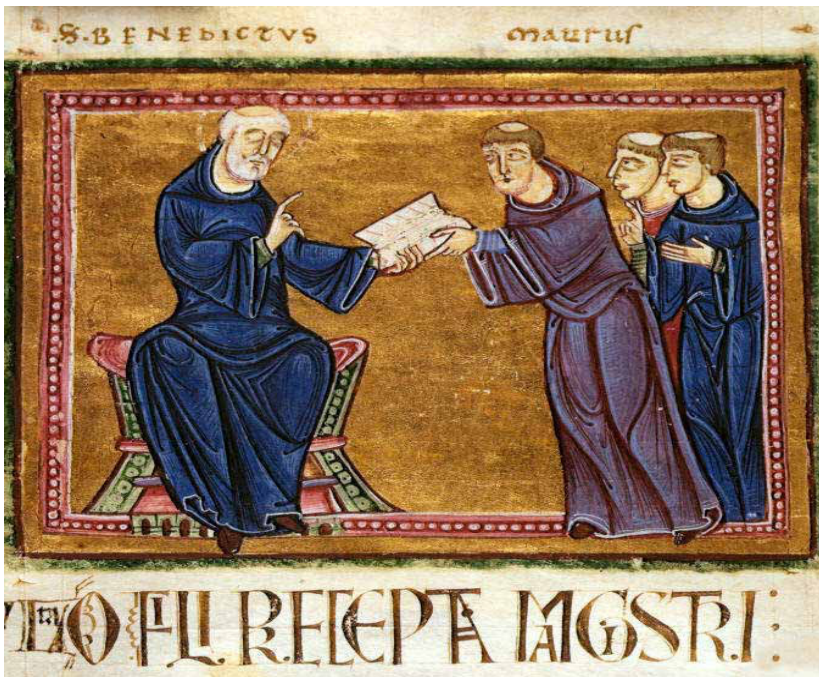 S. BENEDICTVS maurus
O FILI PRECEPTA MAGISTRI: